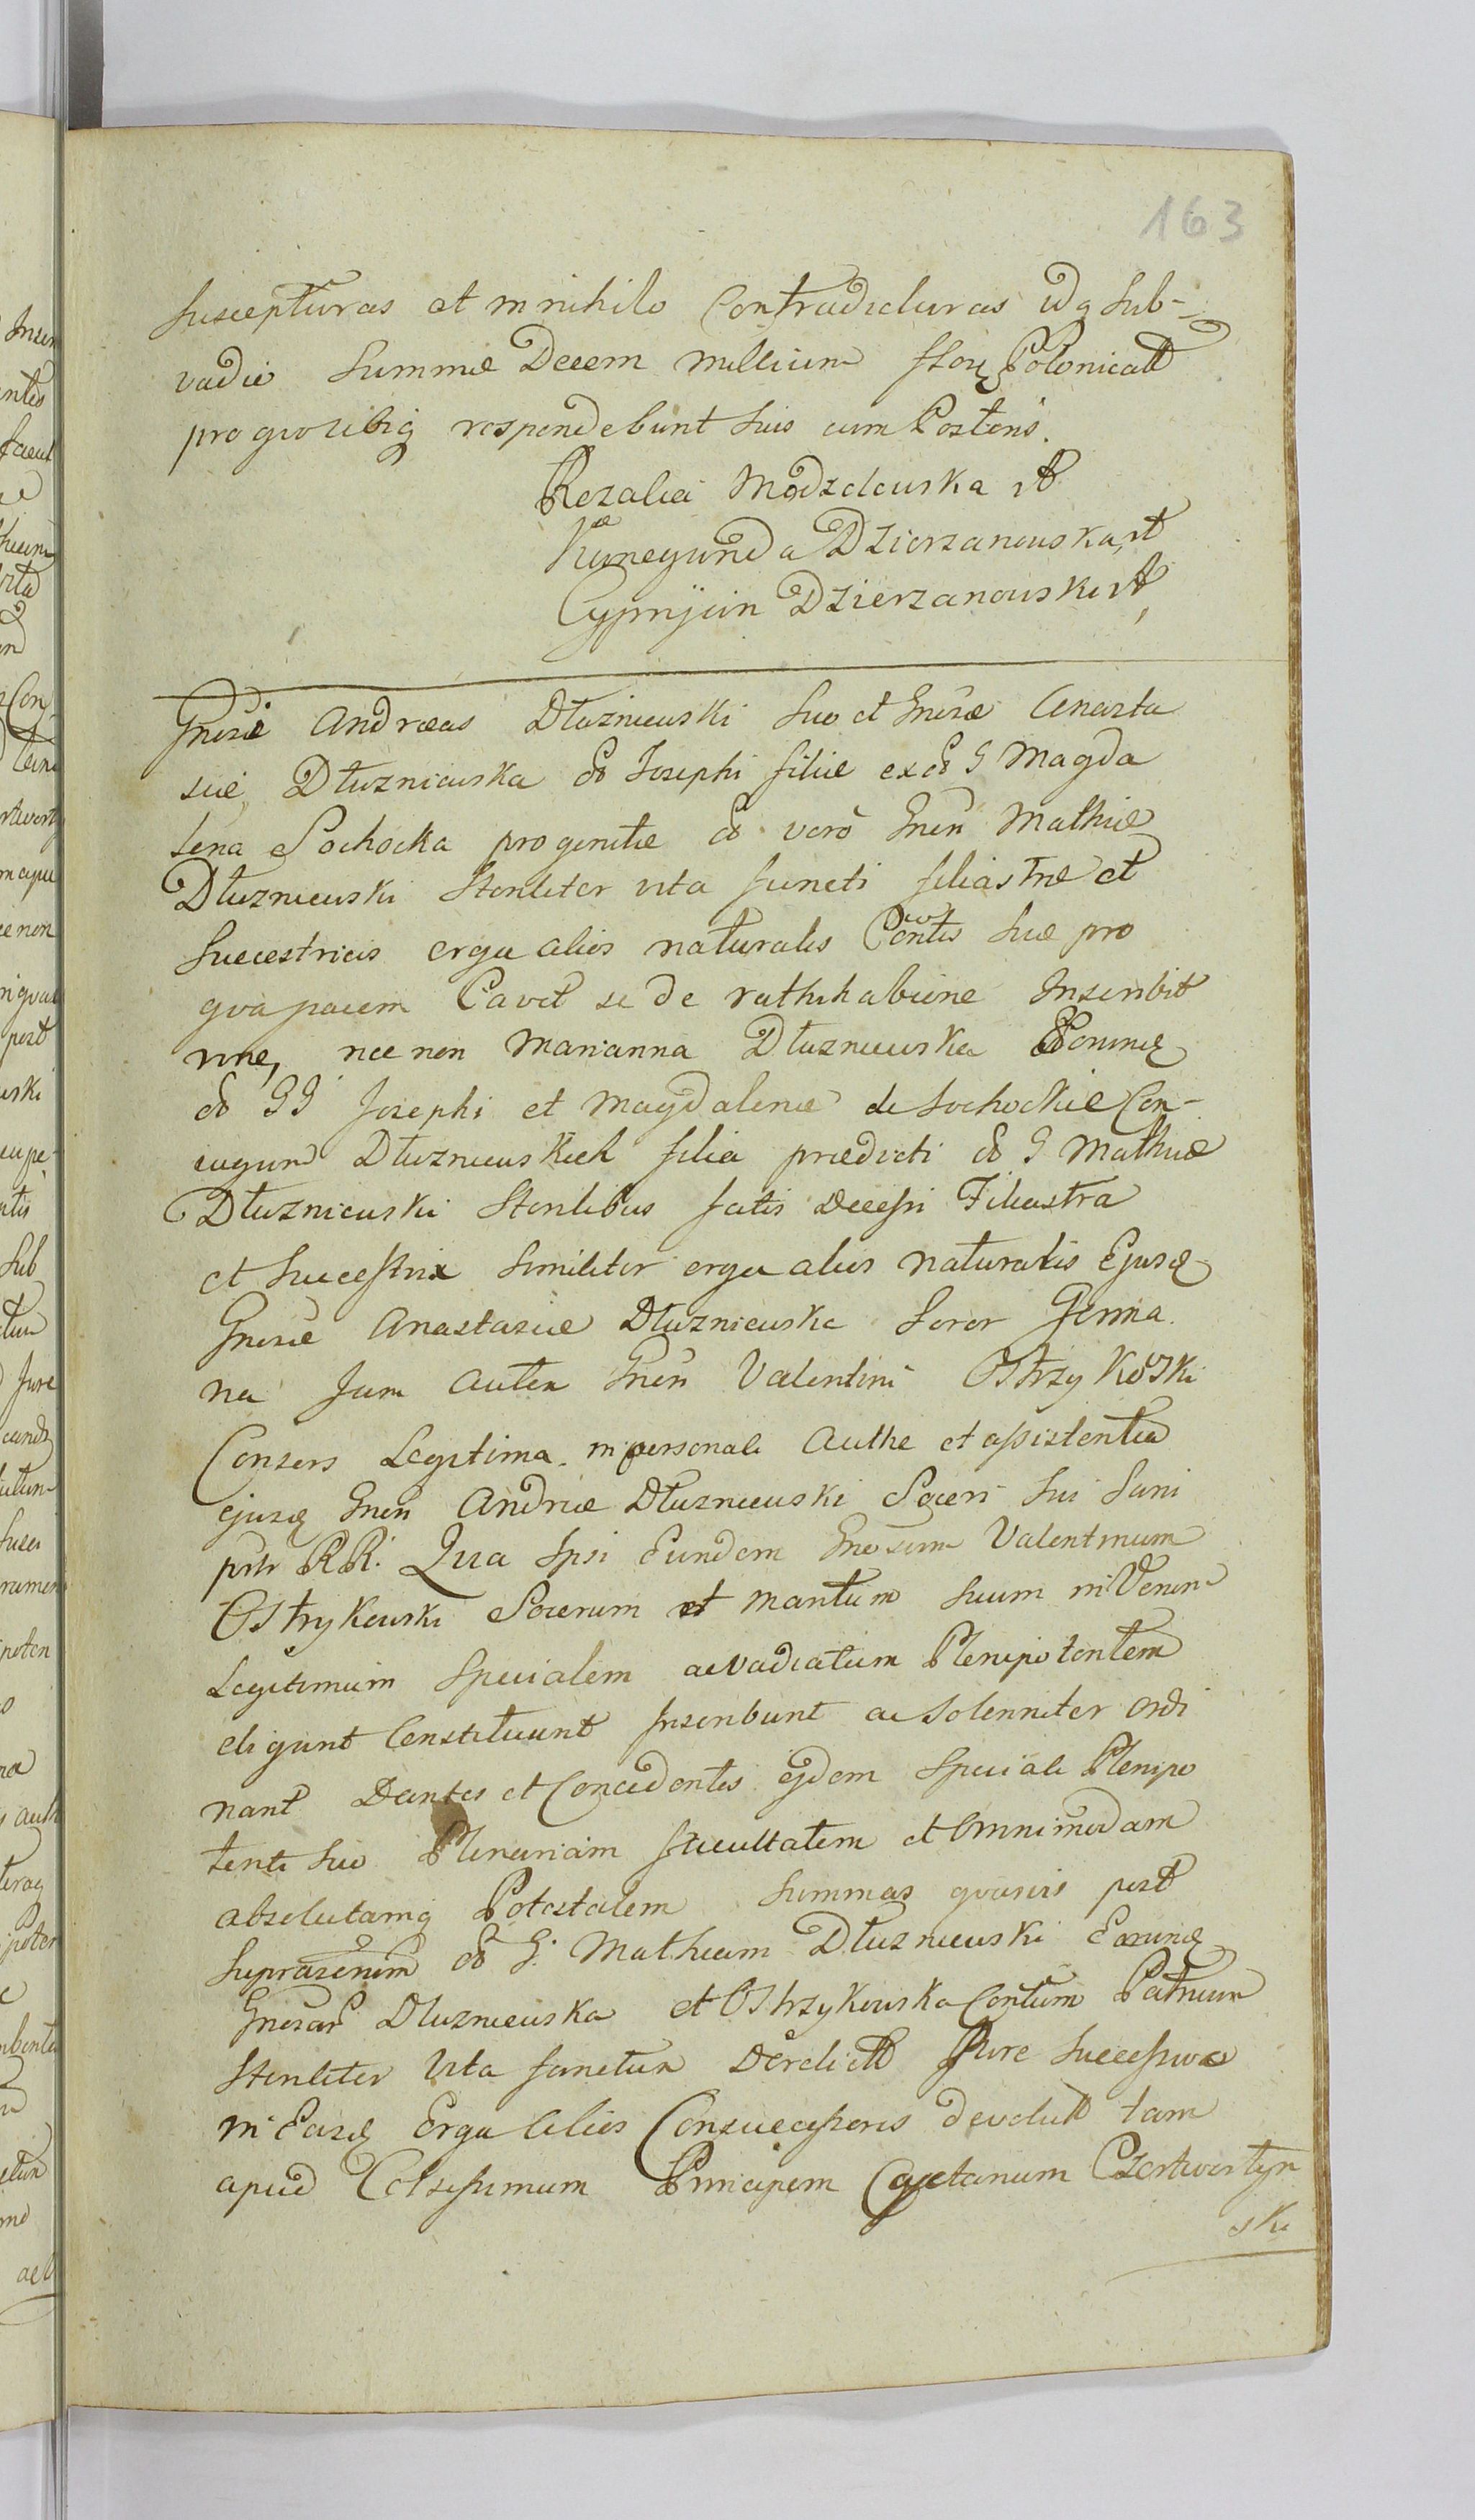 163
suscepturas et in nihilo Contradicturas idq sub-
vadio summæ Decem millium flor Polonicall
pro quolibiq respondebunt suis cum Posteris.
Rozalia Modzelewska
Kunegunda Dzierzanowska
Cypryan Dzierzanowski
Gnosi Andræas Dłuzniewski suo et Gnosæ Anasta
siæ Dłuzniewska Josephi filiæ ex G Magda
lena Sochocka progenitæ vero Gnen Mathiæ
Dłuzniewski Steriliter vita functi filiastræ et
Successtricis erga alios naturales suæ pro
qva pacem Cavet se de rathihabiene Inscribit
nne, nec non Marianna Dłuzniewska
GG Josephi et Magdalenæ de Sochockie Con-
iugum Dłuzniewskich filia prædicti G Mathiæ
Dłuzniewski Sterilibus fatis Decessi Filiastra
et Successtrix Similiter erga alios naturalis Ejusd
Gnosæ Anastasiæ Dłuzniewska Soror Germa
na Jam autem Gnen Valentini Ostrzykoski
Consors Legitima in personali Authe et assistentia
ejusd Gnen Andreæ Dłuzniewski Soceri Sui Sani
RR. Qua Ipsi Eundem Gnosum Valentinum
Ostrykowski Socerum et Maritum suum in Verum
Legitimum Specialem ac vadiatum Plenipotentem
eligunt Constituunt Inscribunt ac Solenniter ordi
nant Dantes et Concedentes ejdem Speciali Plenipo
tenti suo Plenariam facultatem et omnimodam
absolutamq Potestatem Summas quasvis post
G. Mathiam Dłuzniewski
Dłuzniewska et Ostrzykowska Patruum
Steriliter Vita functum Derelictt Jure Successivo
in Easd Erga Alios Consuccessores devolutt tam
apud Celsissimum Principem Cajetanum Czertwertyn
ski